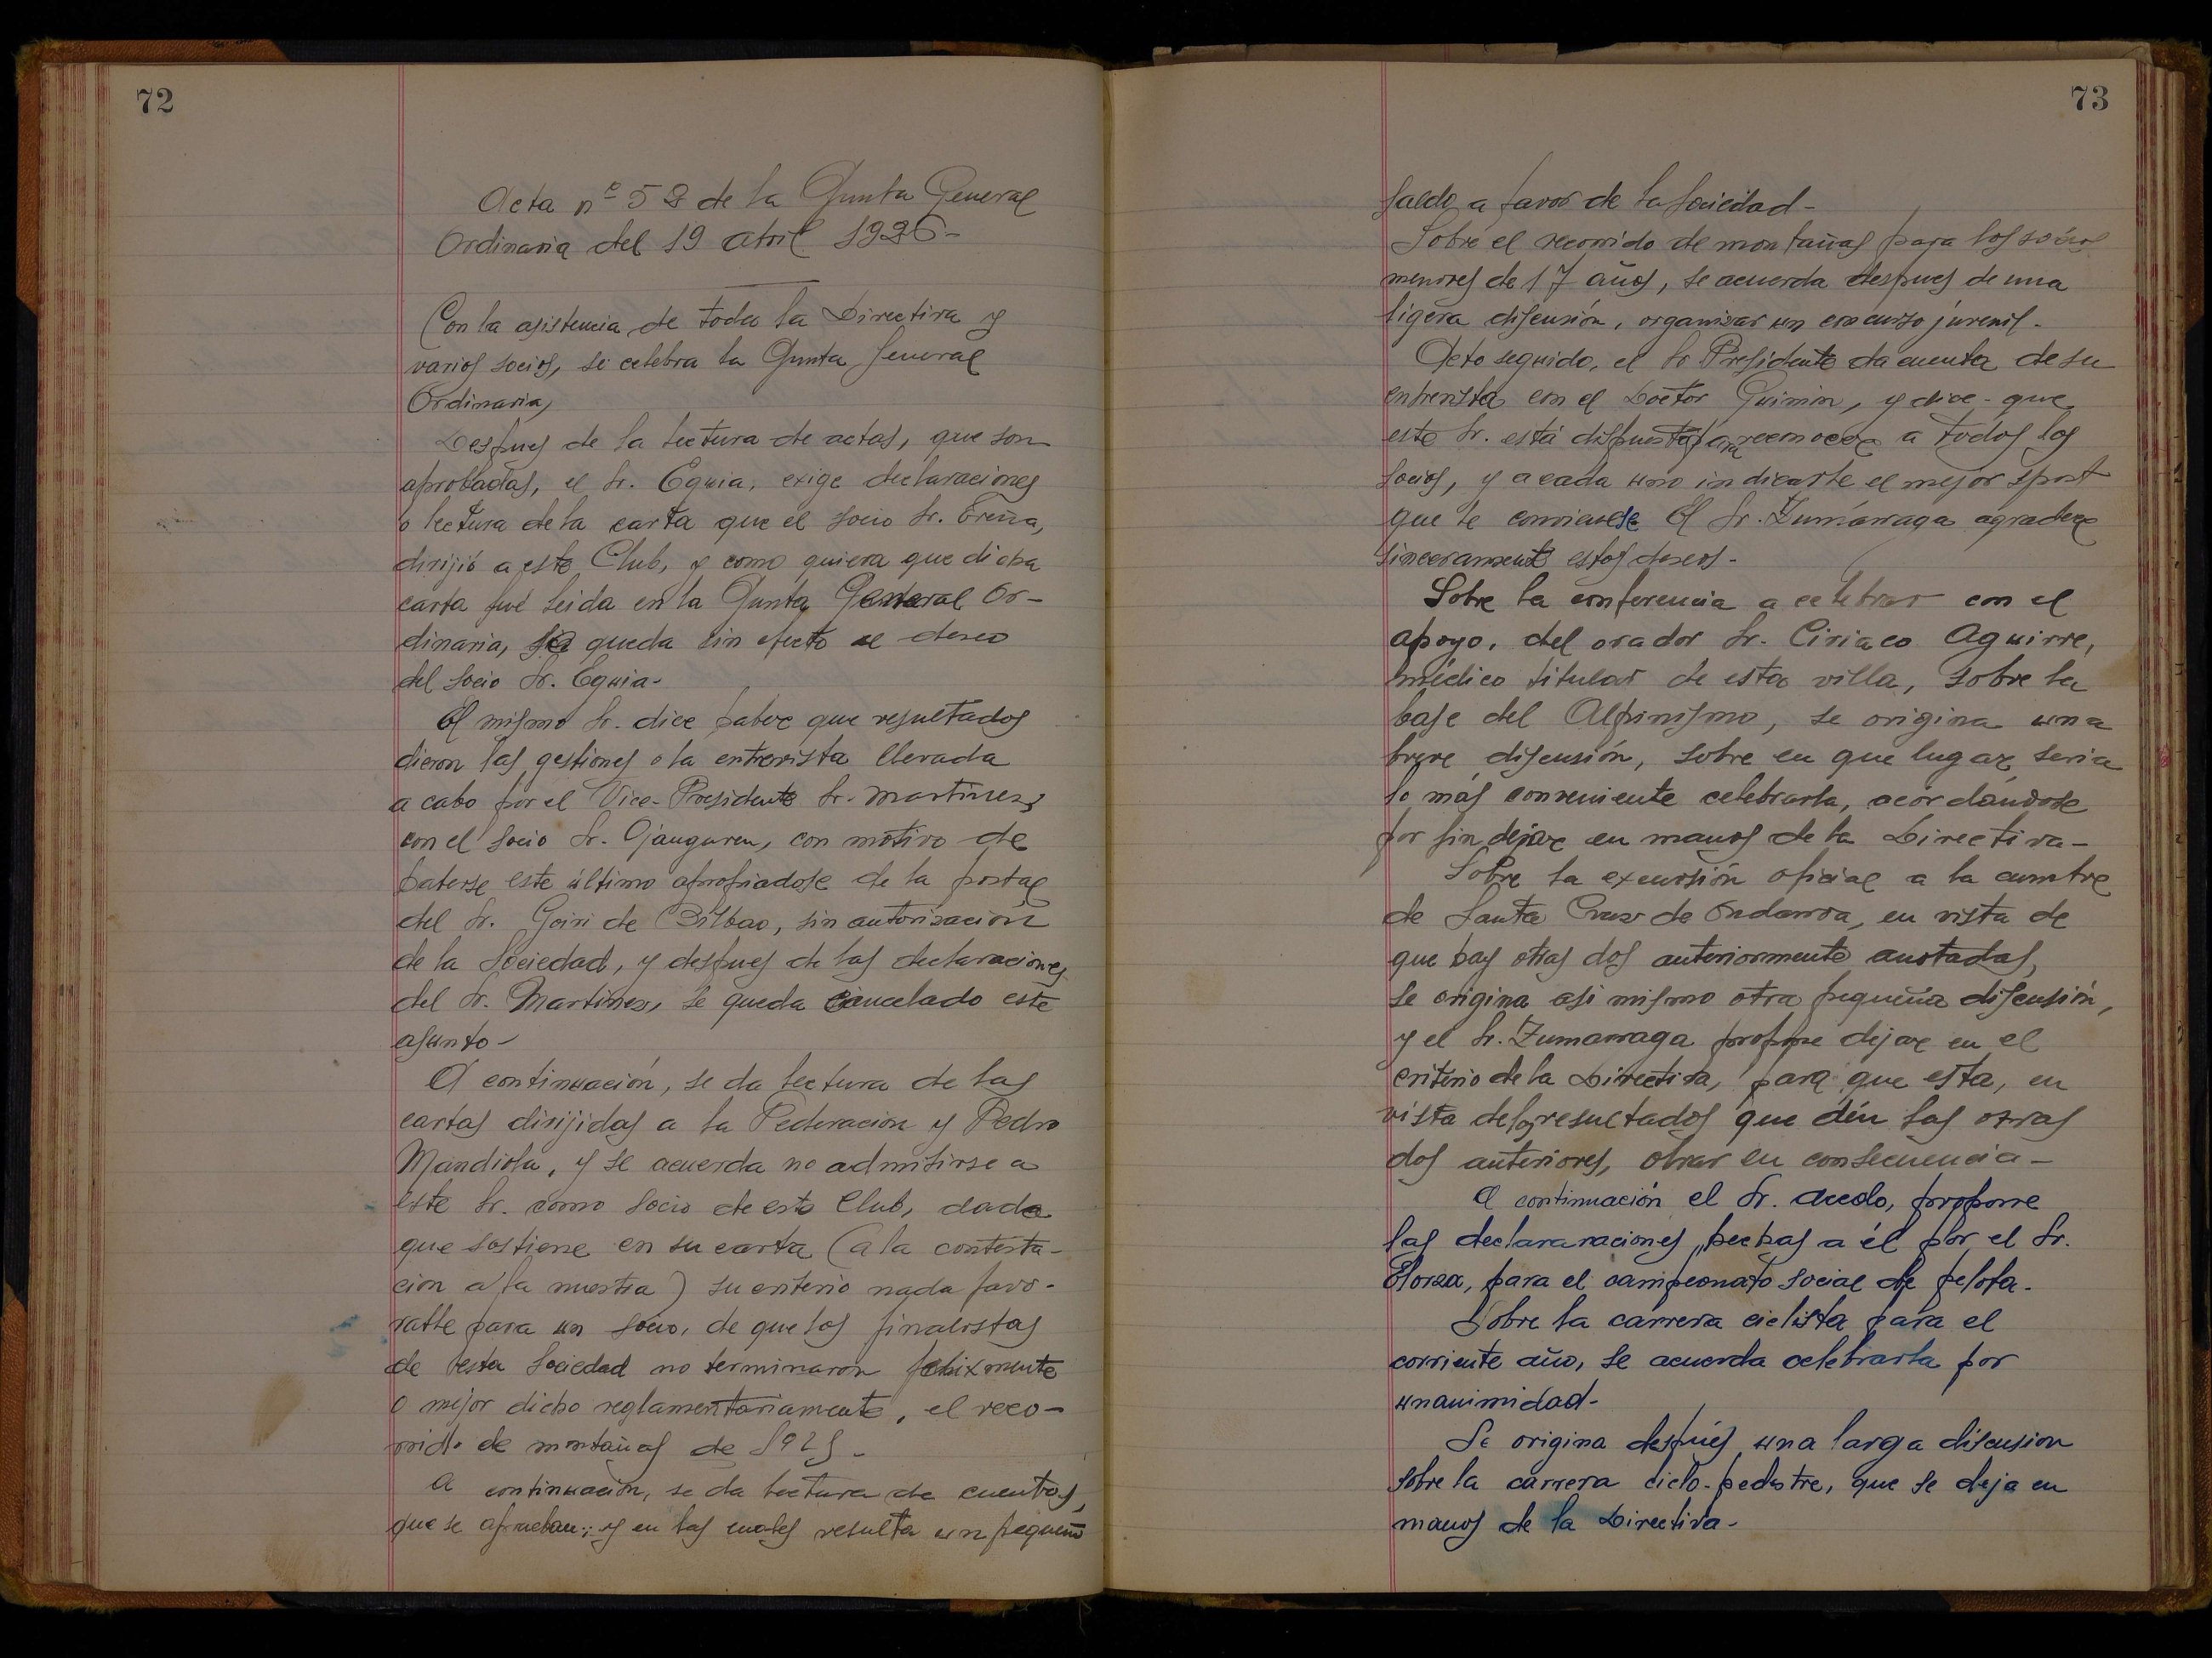 72
Acta nº 58 de la Junta General
Ordinaria del 19 abril 1926-
Con la asistencia de toda la Directiva y
varios socios, se celebra la Junta General
Ordinaria,
Despues de la lectura de actas, que son
aprobadas, el Sr. Eguia, exige declaraciones
o lectura de la carta que el socio Sr. Ereña,
dirijió a este Club, y como quiera que dicha
carta fué leida en la Junta General Or-
dinaria, queda sin efecto el deseo
del socio Sr. Eguia-
El mismo Sr. dice saber que resultados
dieron las gestiones o la entrevista llevada
a cabo por el Vice-Presidente Sr. Martinez,
con el socio Sr. Ojanguren, con motivo de
haberse este último apropiadose de la postal
del Sr. Goiri de Bilbao, sin autorización
de la Sociedad, y despues de las declaraciones
del Sr. Martinez, se queda cancelado este
asunto-
A continuación, se da lectura de las
cartas dirijidas a la Federación y Pedro
Mandiola, y se acuerda no admitirse a
este Sr. como socio de este Club, dado
que sostiene en su carta (a la contesta-
cion a la nuestra) su criterio nada favo-
rable para un socio, de que los finalistas
de esta Sociedad no terminaron felixmente
o mejor dicho reglamentariamente, el reco-
rrido de montañas de 1925-
A continuación, se da lectura de cuentas,
que se aprueban; y en las cuales resulta un pequeño
73
saldo a favor de la Sociedad-
Sobre el recorrido de montañas para los socios
menores de 17 años, se acuerda despues de una
ligera discusión, organizar un concurso júvenil-
Acto seguido, el Sr Presidente da cuenta de su
entrevista con el Doctor Guimon, y dice- que
este Sr. está dispuesto para reconocer a todos los
socios, y a cada uno indicarle el mejor sport
que le conviene. El Sr. Zumárraga agradece
sinceramente estos deseos-
Sobre la conferencia a celebrar con el
apoyo, del orador Sr. Ciriaco Aguirre,
médico titular de esta villa, sobre la
base del Alpinismo, se origina una
breve discusión, sobre en que lugar seria
lo más conveniente celebrarla, acordándose
por fin dejar en manos de la Directiva-
Sobre la excursión oficial a la cumbre
de Santa Cruz de Ondarroa, en vista de
que hay otras dos anteriormente anotadas,
se origina asi mismo otra pequeña discusión,
y el Sr. Zumarraga propone dejar en el
criterio de la Directiva, para que esta, en
vista de los resultados que dén las otras
dos anteriores, obrar en consecuencia-
A continuación el Sr. Acedo, propone
las declararaciones hechas a él por el Sr.
Elorza, para el campeonato social de pelota.
Sobre la carrera ciclista para el
corriente año, se acuerda celebrarla por
unanimidad-
Se origina después una larga discusion
sobre la carrera ciclo-pedestre, que se deja en
manos de la Directiva-